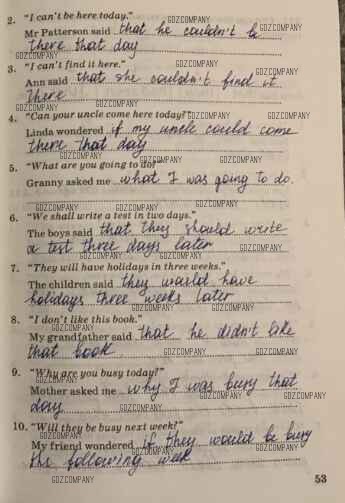 2. "I can't be here today." GDZCOMPANY
Mr Patterson said that he couldn't be GDZCOMPANY
there that day
GDZCOMPANY
3. "I can't find it here." GDZCOMPANY
Ann said that she couldn't find it
there
GDZCOMPANY GDZCOMPANY
4. "Can your uncle come here today?" GDZCOMPANY
Linda wondered if my uncle could come
there that day
GDZCOMPANY GDZCOMPANY
5. "What are you going to do?" GDZCOMPANY
Granny asked me what I was going to do.
GDZCOMPANY GDZCOMPANY
6. "We shall write a test in two days."
GDZCOMPANY
The boys said that they should write
a test three days later GDZCOMPANY
7. "They will have holidays in three weeks."
GDZCOMPANY
The children said they would have
holidays three weeks later
GDZCOMPANY GDZCOMPANY
8. "I don't like this book."
GDZCOMPANY
My grandfather said that he didn't like
that book GDZCOMPANY GDZCOMPANY
9. "Why are you busy today?"
GDZCOMPANY
Mother asked me why I was busy that
GDZCOMPANY
day GDZCOMPANY
10. "Will they be busy next week?"
GDZCOMPANY
My friend wondered if they would be busy
GDZCOMPANY GDZCOMPANY
the following week
GDZCOMPANY
53